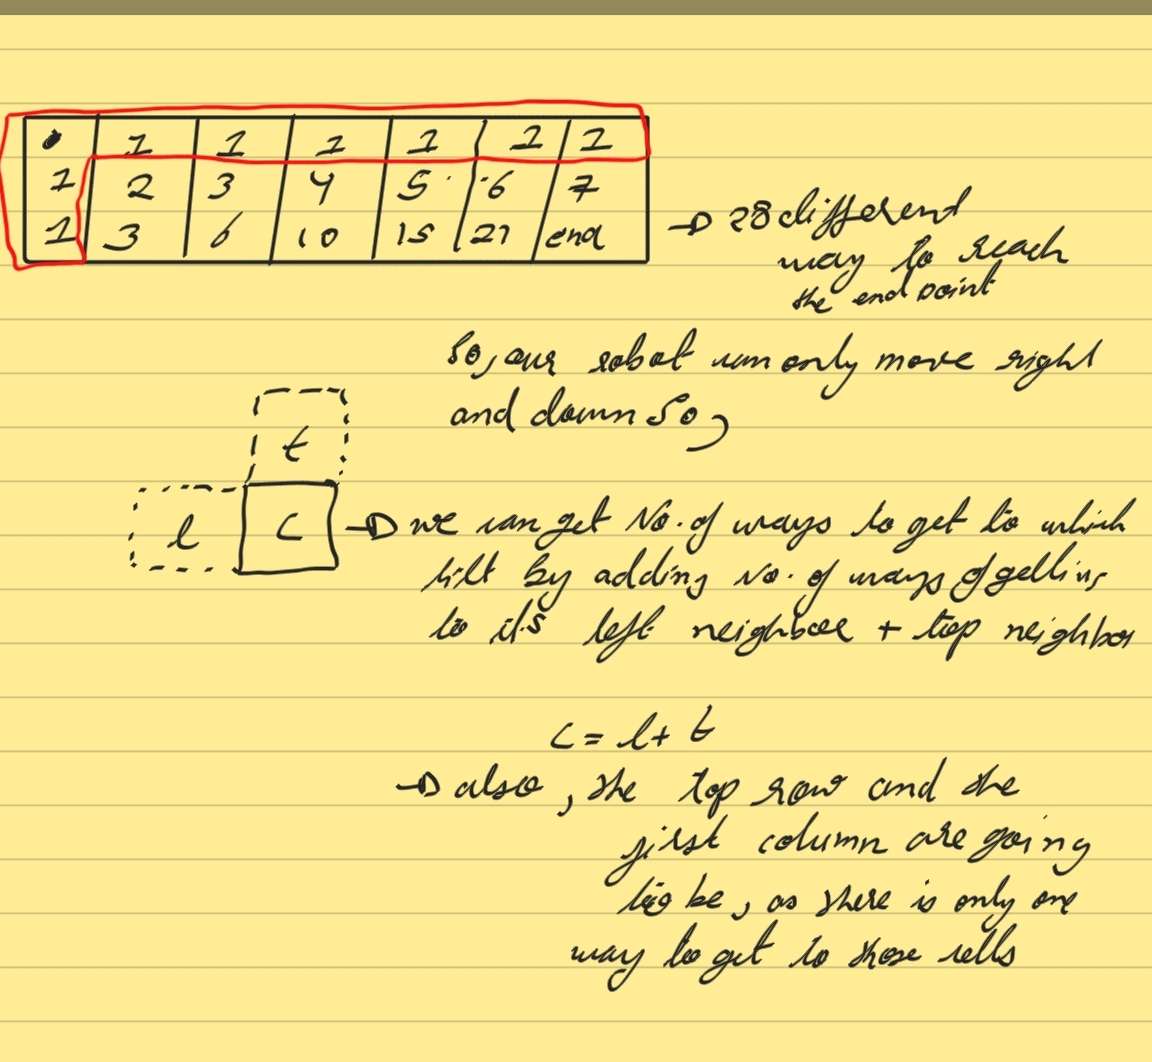 1 1 1 1 1 1
1 2 3 4 5 6 7
1 3 6 10 15 21 end
→ 28 different
way to reach
the end point
So, our robot can only move right
and down So,
t
l c → we can get No. of ways to get to which
by adding No. of ways of getting
to it's left neighbor + top neighbor
c = l + t
→ also, the top row and the
first column are going
to be, as there is only one
way to get to those cells